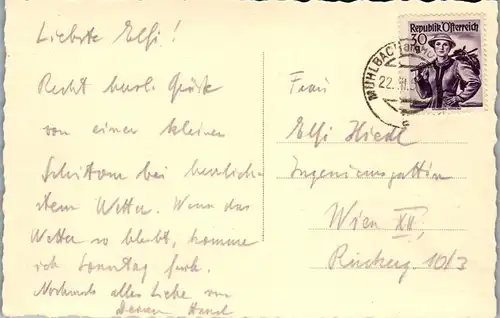 Liebste Elfi!
Recht herzl. Grüße
von einer kleinen
bei herrlich-
stem Wetter. Wenn das
Wetter so bleibt, komme
ich Sonntag früh.
Nochmals alles Liebe von
Deinem
Republik Österreich
30
MÜHLBACH
22.
Frau
Elfi Hiedl
Ingenieursgattin
Wien XII,
10/3